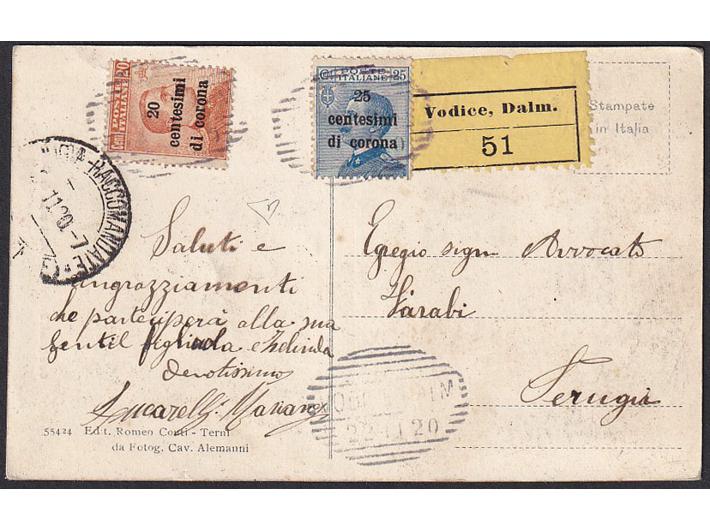 20
centesimi
di corona
POSTE
ITALIANE
25
25
centesimi
di corona
Vodice, Dalm.
51
Stampate
in Italia
RACCOMANDATE
11.20.-7
Saluti e
ringrazziamenti
che parteciperà alla sua
gentil
Devotissimo
Lucarelli
Egregio sign Avvocato
Perugia
22 11 20
55424 Edit. Romeo Conti - Terni
da Fotog. Cav. Alemanni